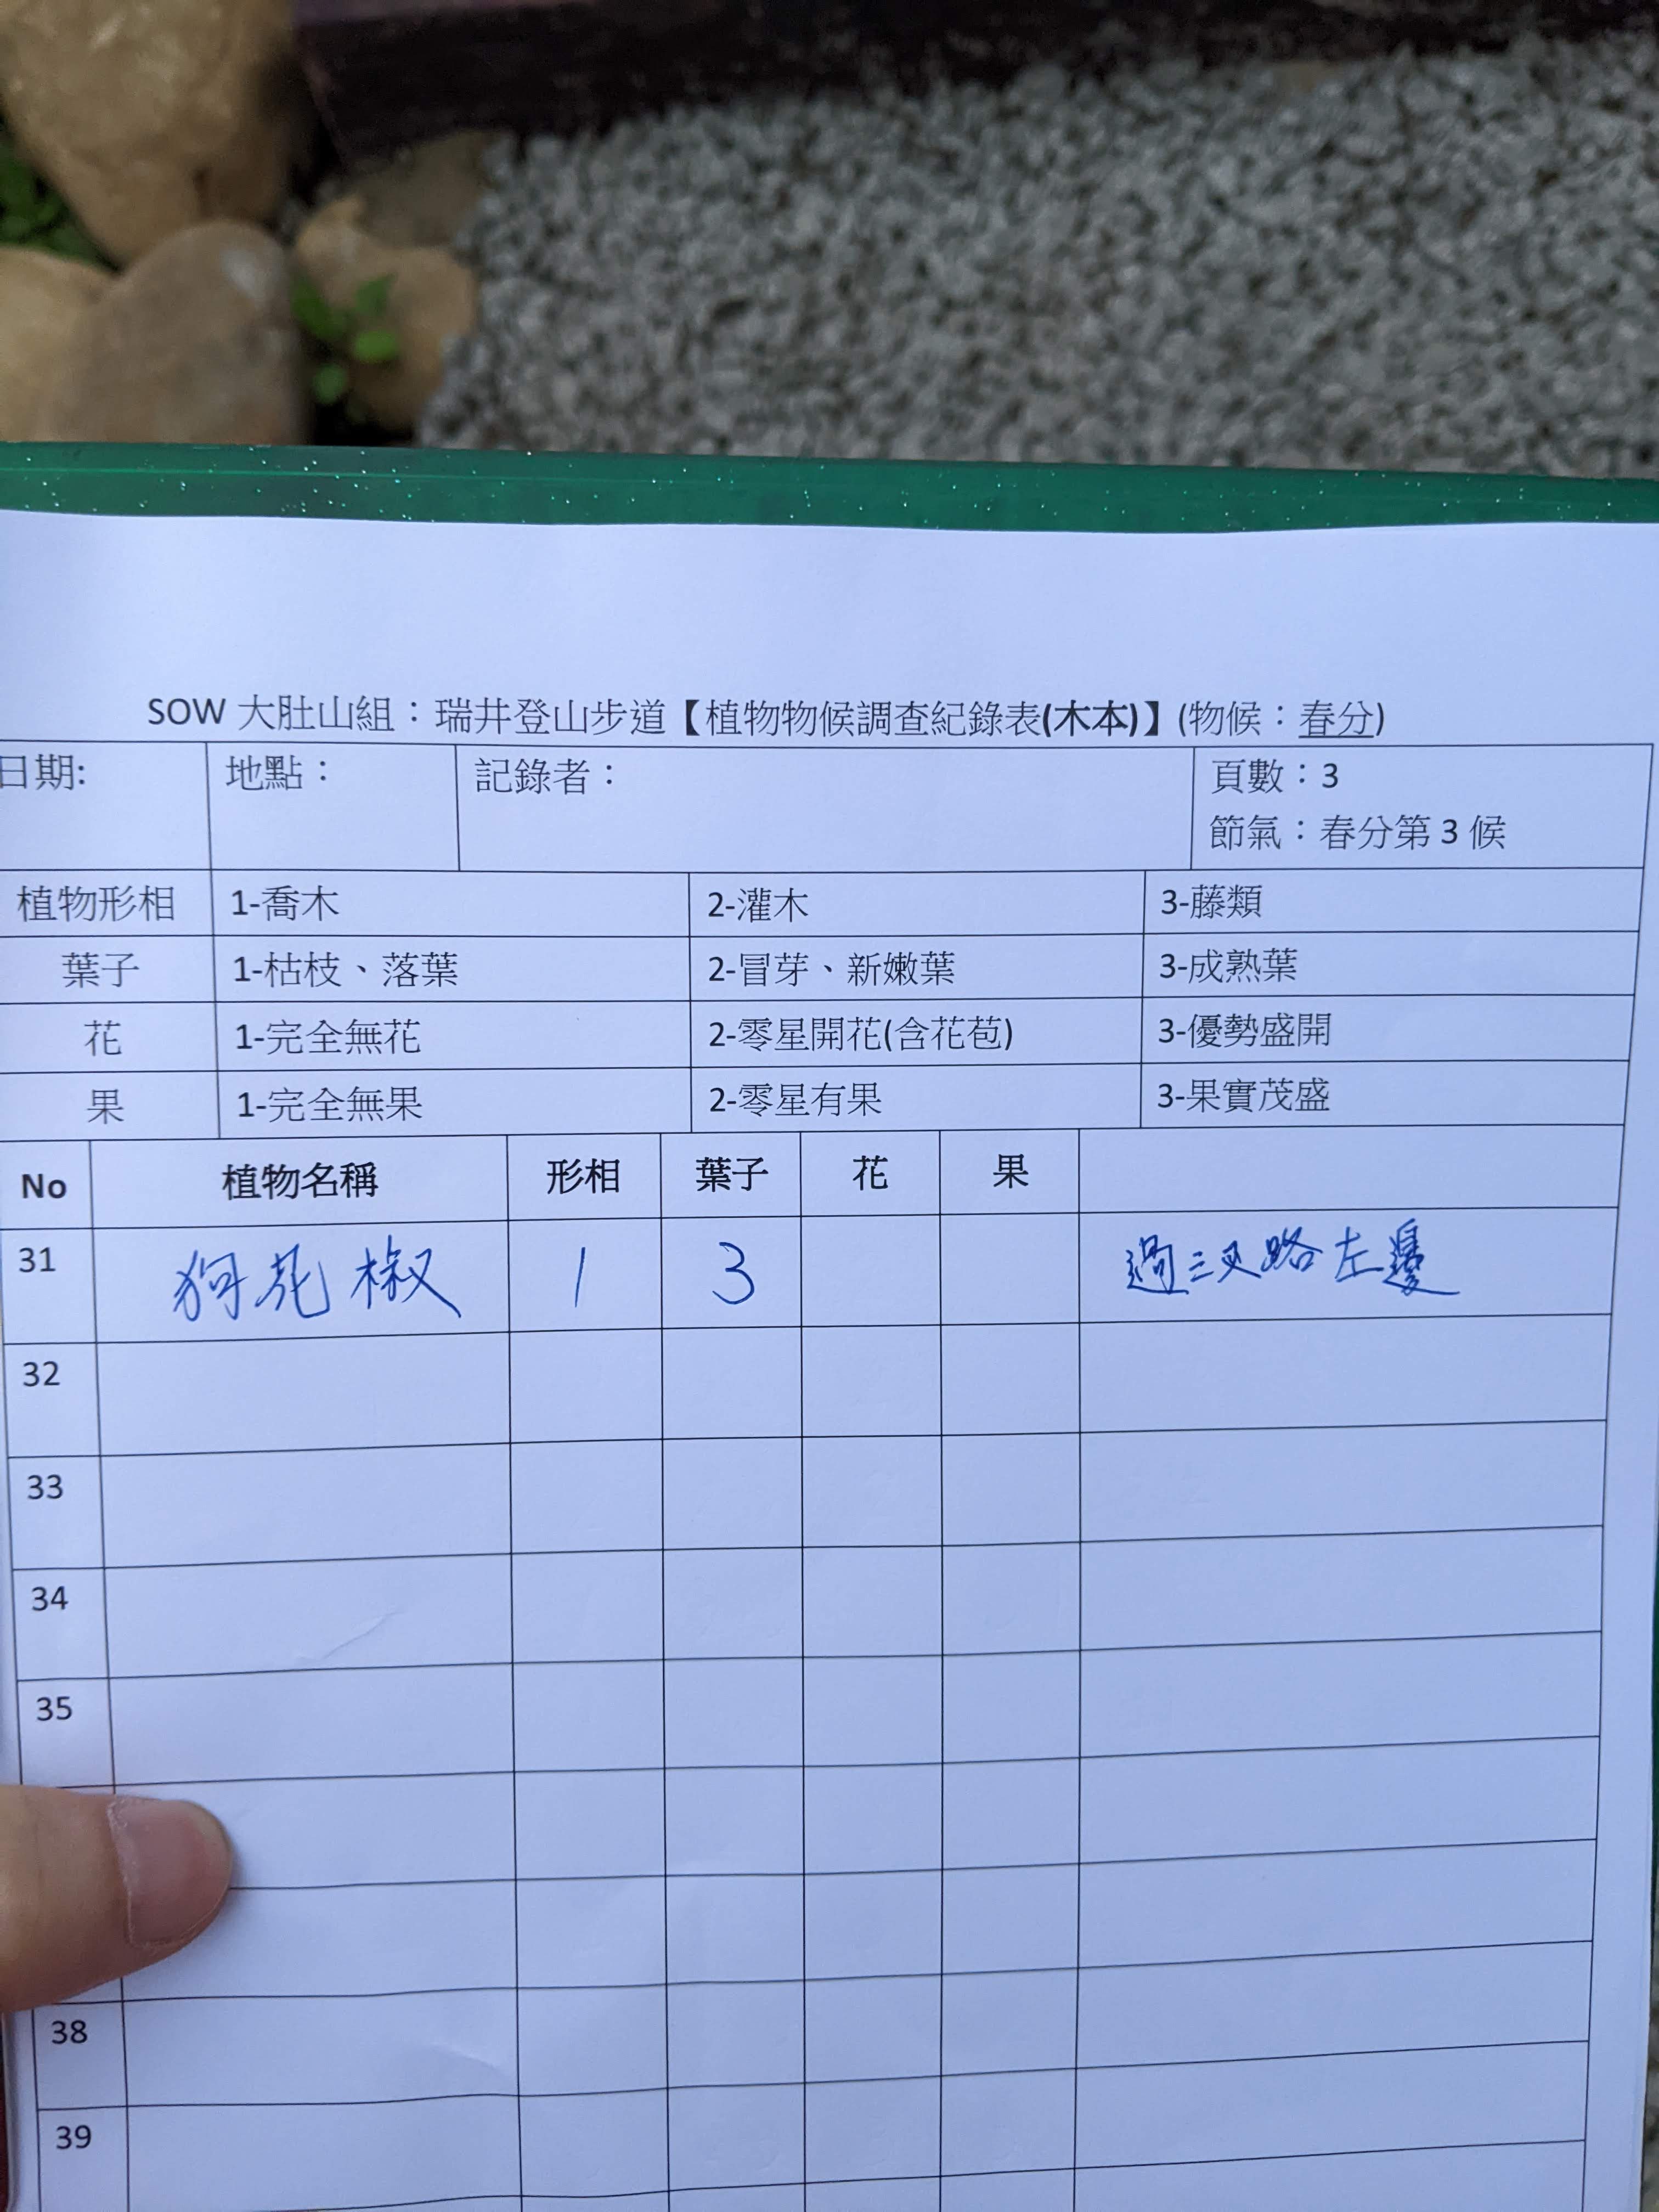 SOW 大肚山組：瑞井登山步道【植物物候調查紀錄表(木本)】(物候：春分)
日期: 地點： 記錄者： 頁數：3
節氣：春分第 3 候
植物形相 1-喬木 2-灌木 3-藤類
葉子 1-枯枝、落葉 2-冒芽、新嫩葉 3-成熟葉
花 1-完全無花 2-零星開花(含花苞) 3-優勢盛開
果 1-完全無果 2-零星有果 3-果實茂盛
No 植物名稱 形相 葉子 花 果
31 狗花椒 1 3 過三叉路左邊
32
33
34
35
38
39